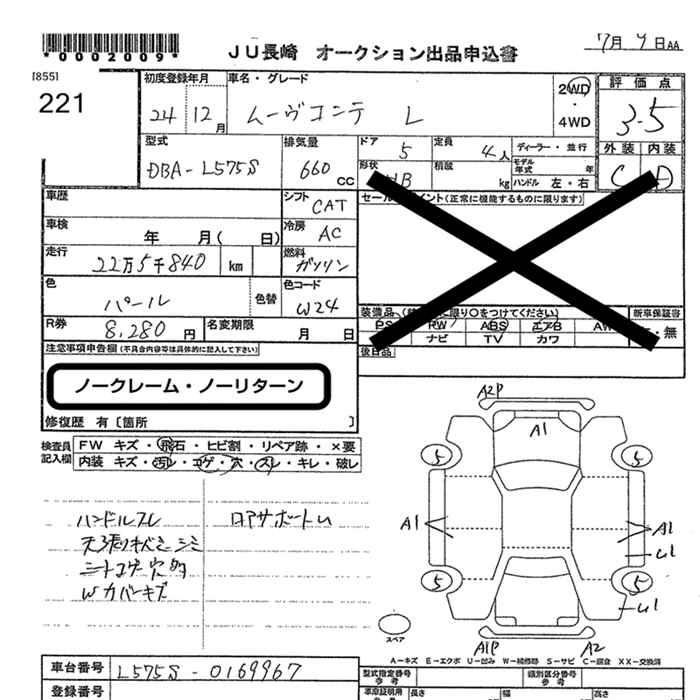 *0002009*
JU長崎 オークション出品申込書
7月9日AA
[855]
221
初度登録年月
24 12月
車名・グレード
ムーヴコンテ L
2WD
・
4WD
評価点
3.5
型式
DBA-L575S
排気量
660 CC
ドア
5
定員
4人
ディーラー・並行
モデル年式 年
形状
積載
kg
ハンドル 左・右
外装 内装
C D
車歴
シフト CAT
車検
年 月( 日)
冷房 AC
走行
22万5千840 km
燃料 ガソリン
色
パール
色替
色コード
W24
R券
8,280円
名変期限
月 日
注意事項申告欄(不具合内容等は具体的に記入して下さい)
ノークレーム・ノーリターン
修復歴 有〔箇所 〕
(正常に機能するものに限ります)
装備品
に限り○をつけてください)
新車保証書
無
PS RW ABS エアB AW
ナビ TV カワ
後日品
検査員記入欄
FW キズ・飛石・ヒビ割・リペア跡・×要
内装 キズ・汚レ・コゲ・穴・スレ・キレ・破レ
ハンドルスレ
天張り状ミシミ
シートコゲ穴
Wカバーキズ
ロアサポート
A2P
A1
5 5
A1
A1
U1
5 5
U1
スペア
A1P A2
A-キズ E-エクボ U-凹み W-補修跡 S-サビ C-腐食 XX-交換済
車台番号
L575S-0169967
登録番号
型式指定番号
参考
類別区分番号
参考
長さ
幅
高さ